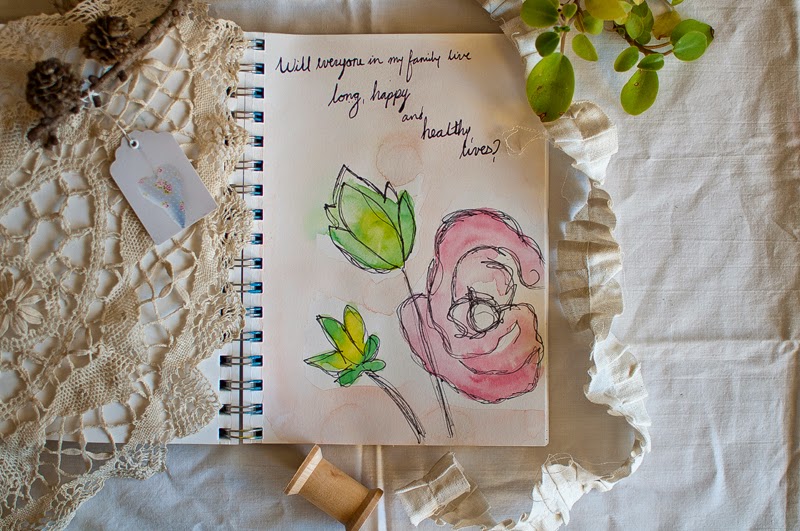 Will everyone in my family live
long, happy
and
healthy
lives?